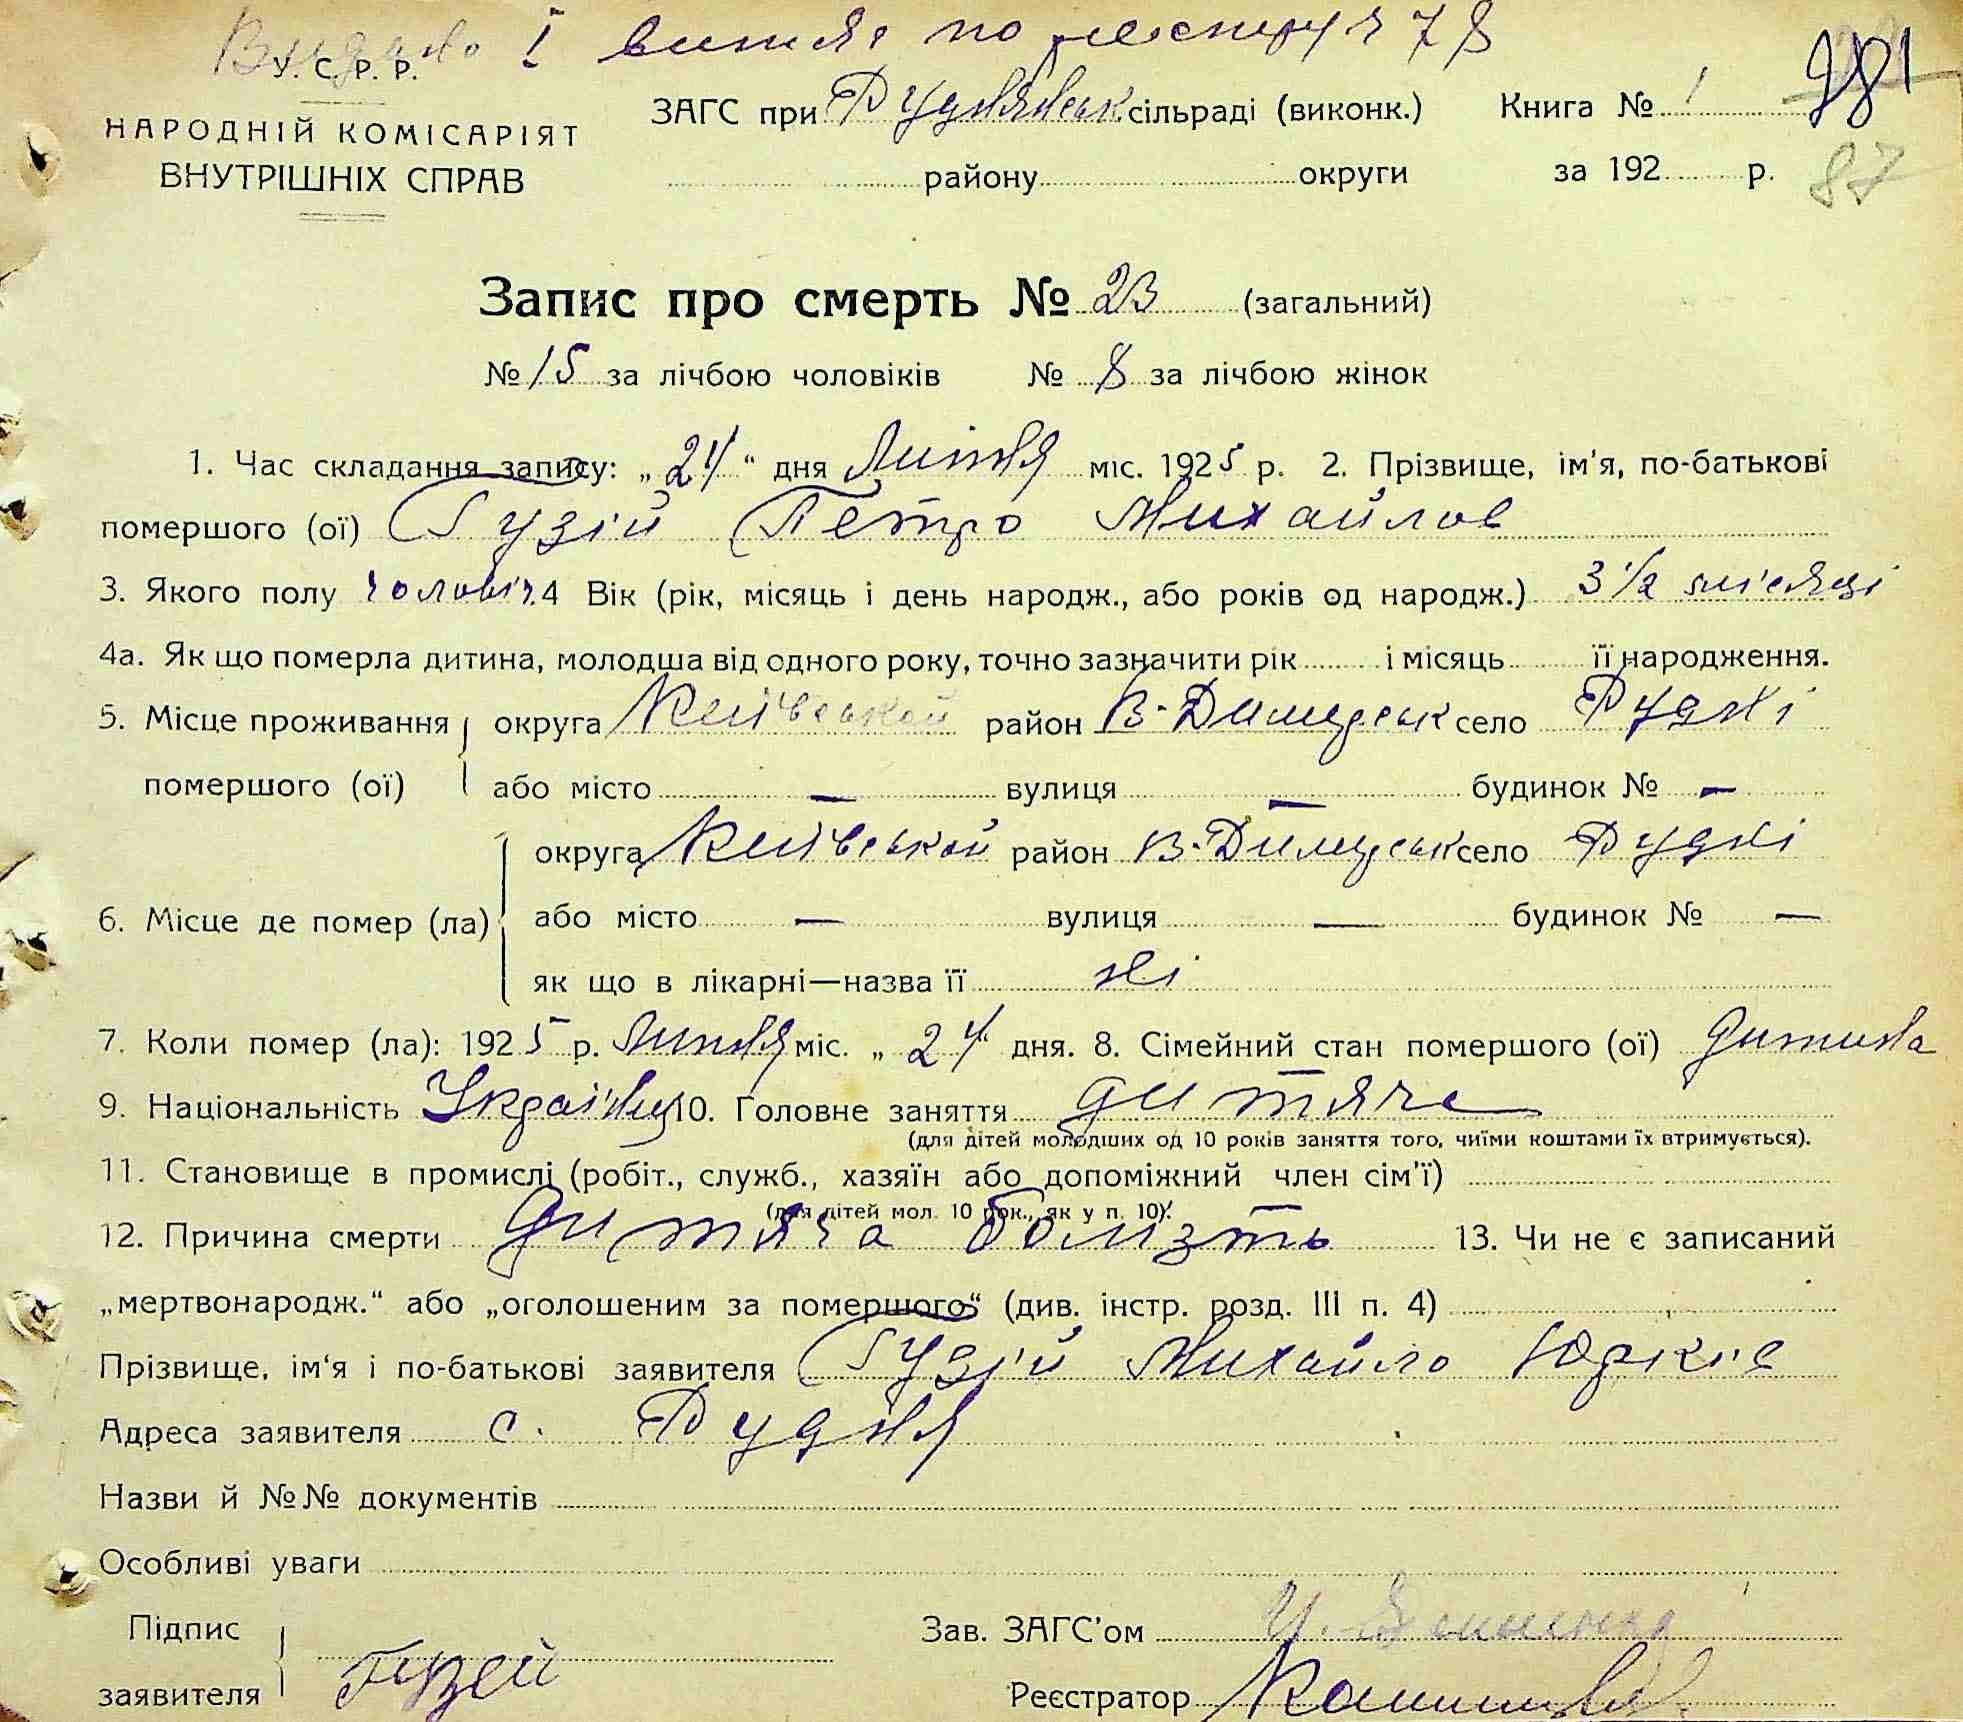 Видано 1 витяг по реєстру ч 78
У. С. Р. Р.
НАРОДНІЙ КОМІСАРІЯТ
ВНУТРІШНІХ СПРАВ
ЗАГС при Руднянськ. сільраді (виконк.) Книга № 1 981
району округи за 192 р. 87
Запис про смерть № 23 (загальний)
№ 15 за лічбою чоловіків № 8 за лічбою жінок
1. Час складання запису: „24“ дня Липня міс. 1925 р. 2. Прізвище, ім'я, по-батькові
помершого (ої) Гузій Петро Михайлов
3. Якого полу чоловіч. 4 Вік (рік, місяць і день народж., або років од народж.) 3 1/2 місяці
4а. Як що померла дитина, молодша від одного року, точно зазначити рік і місяць її народження.
5. Місце проживання округа Київської район В-Димерськ село Рудні
помершого (ої) або місто — вулиця — будинок № —
округа Київської район В-Димерськ село Рудні
6. Місце де помер (ла) або місто — вулиця — будинок № —
як що в лікарні—назва її ні
7. Коли помер (ла): 1925 р. Липня міс. „24“ дня. 8. Сімейний стан помершого (ої) дитина
9. Національність Українц 10. Головне заняття дитяче
(для дітей молодших од 10 років заняття того, чиїми коштами їх втримується).
11. Становище в промислі (робіт., служб., хазяїн або допоміжний член сім'ї)
(для дітей мол. 10 рок., як у п. 10).
12. Причина смерти Дитяча болизть 13. Чи не є записаний
„мертвонародж.“ або „оголошеним за помершого“ (див. інстр. розд. III п. 4)
Прізвище, ім'я і по-батькові заявителя Гузій Михайло Юрків
Адреса заявителя с. Рудня
Назви й №№ документів
Особливі уваги
Підпис Зав. ЗАГС'ом
заявителя Гузей Реєстратор